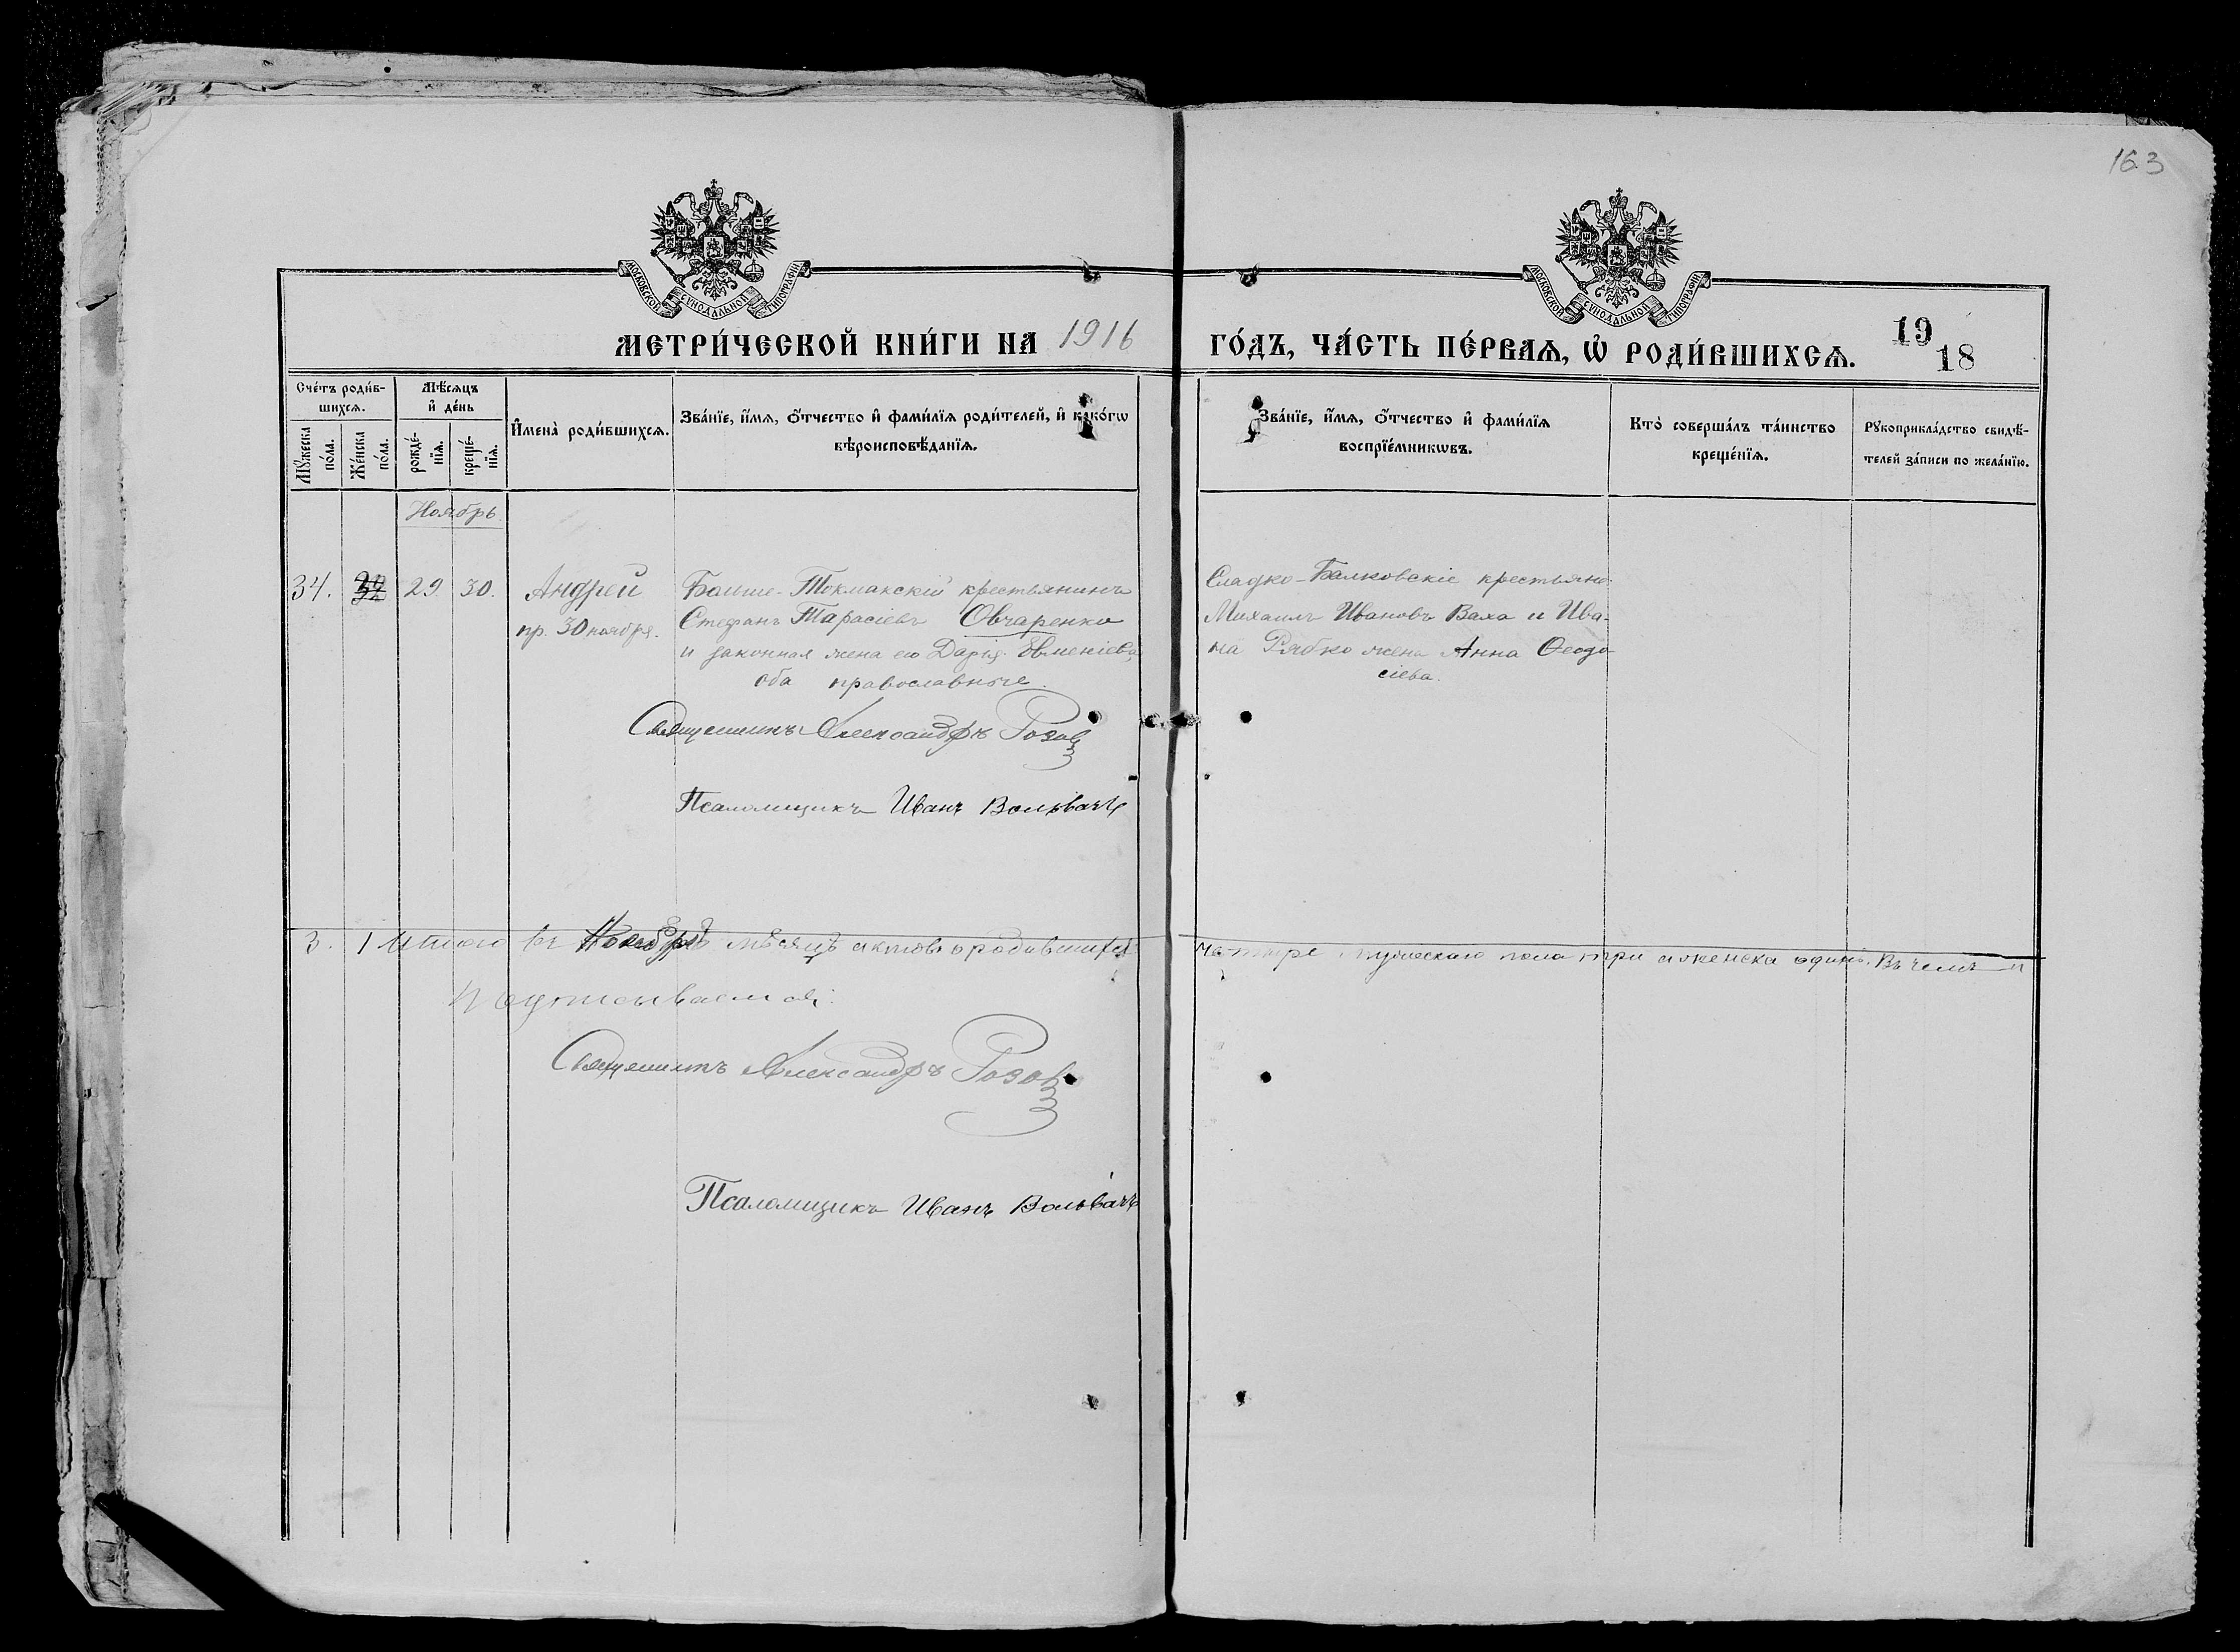 163
МОСКОВСКОЙ СУНОДАЛЬНОЙ ТИПОГРАФІИ
МОСКОВСКОЙ СУНОДАЛЬНОЙ ТИПОГРАФІИ
МЕТРИ́ЧЕСКОЙ КНИ́ГИ НА 1916 ГО́ДЪ, ЧА́СТЬ ПЕ́РВАѦ, Ѡ҆ РОДИ́ВШИХСѦ.
19
18
Сче́тъ роди́в-
шихсѧ.
Мѣ́сѧцъ
и҆ де́нь
Мꙋ́жеска
по́ла.
Же́нска
по́ла.
рожде́-
нїѧ.
креще́-
нїѧ.
И҆мена̀ роди́вшихсѧ.
Зва́нїе, и҆́мѧ, ѻ҆́тчество и҆ фами́лїѧ роди́телей, и҆ како́гѡ
вѣроисповѣ́данїѧ.
Зва́нїе, и҆́мѧ, ѻ҆́тчество и҆ фами́лїѧ
воспрїе́мникѡвъ.
Кто̀ соверша́лъ та́инство
креще́нїѧ.
Рꙋкоприкла́дство свидѣ́-
телей за́писи по жела́нїю.
Ноябрь
34. 29. 30.
Андрей
пр. 30 ноября.
Больше-Токмакскій крестьянинъ
Стефанъ Тарасіевъ Овчаренко
и законная жена его Дарія Евменіева,
оба православные.
Сладко-Балковскіе крестьяне:
Михаилъ Ивановъ Ваха и Ива-
на Рябко жена Анна Ѳеодо-
сіева.
Священникъ Александръ Розовъ
Псаломщикъ Иванъ Вольвачъ
3. 1 Итого въ Ноябрѣ мѣсяцѣ актовъ о родившихся четыре, мужескаго пола три а женска одинъ. Въ чемъ и
подписываемся:
Священникъ Александръ Розовъ
Псаломщикъ Иванъ Вольвачъ